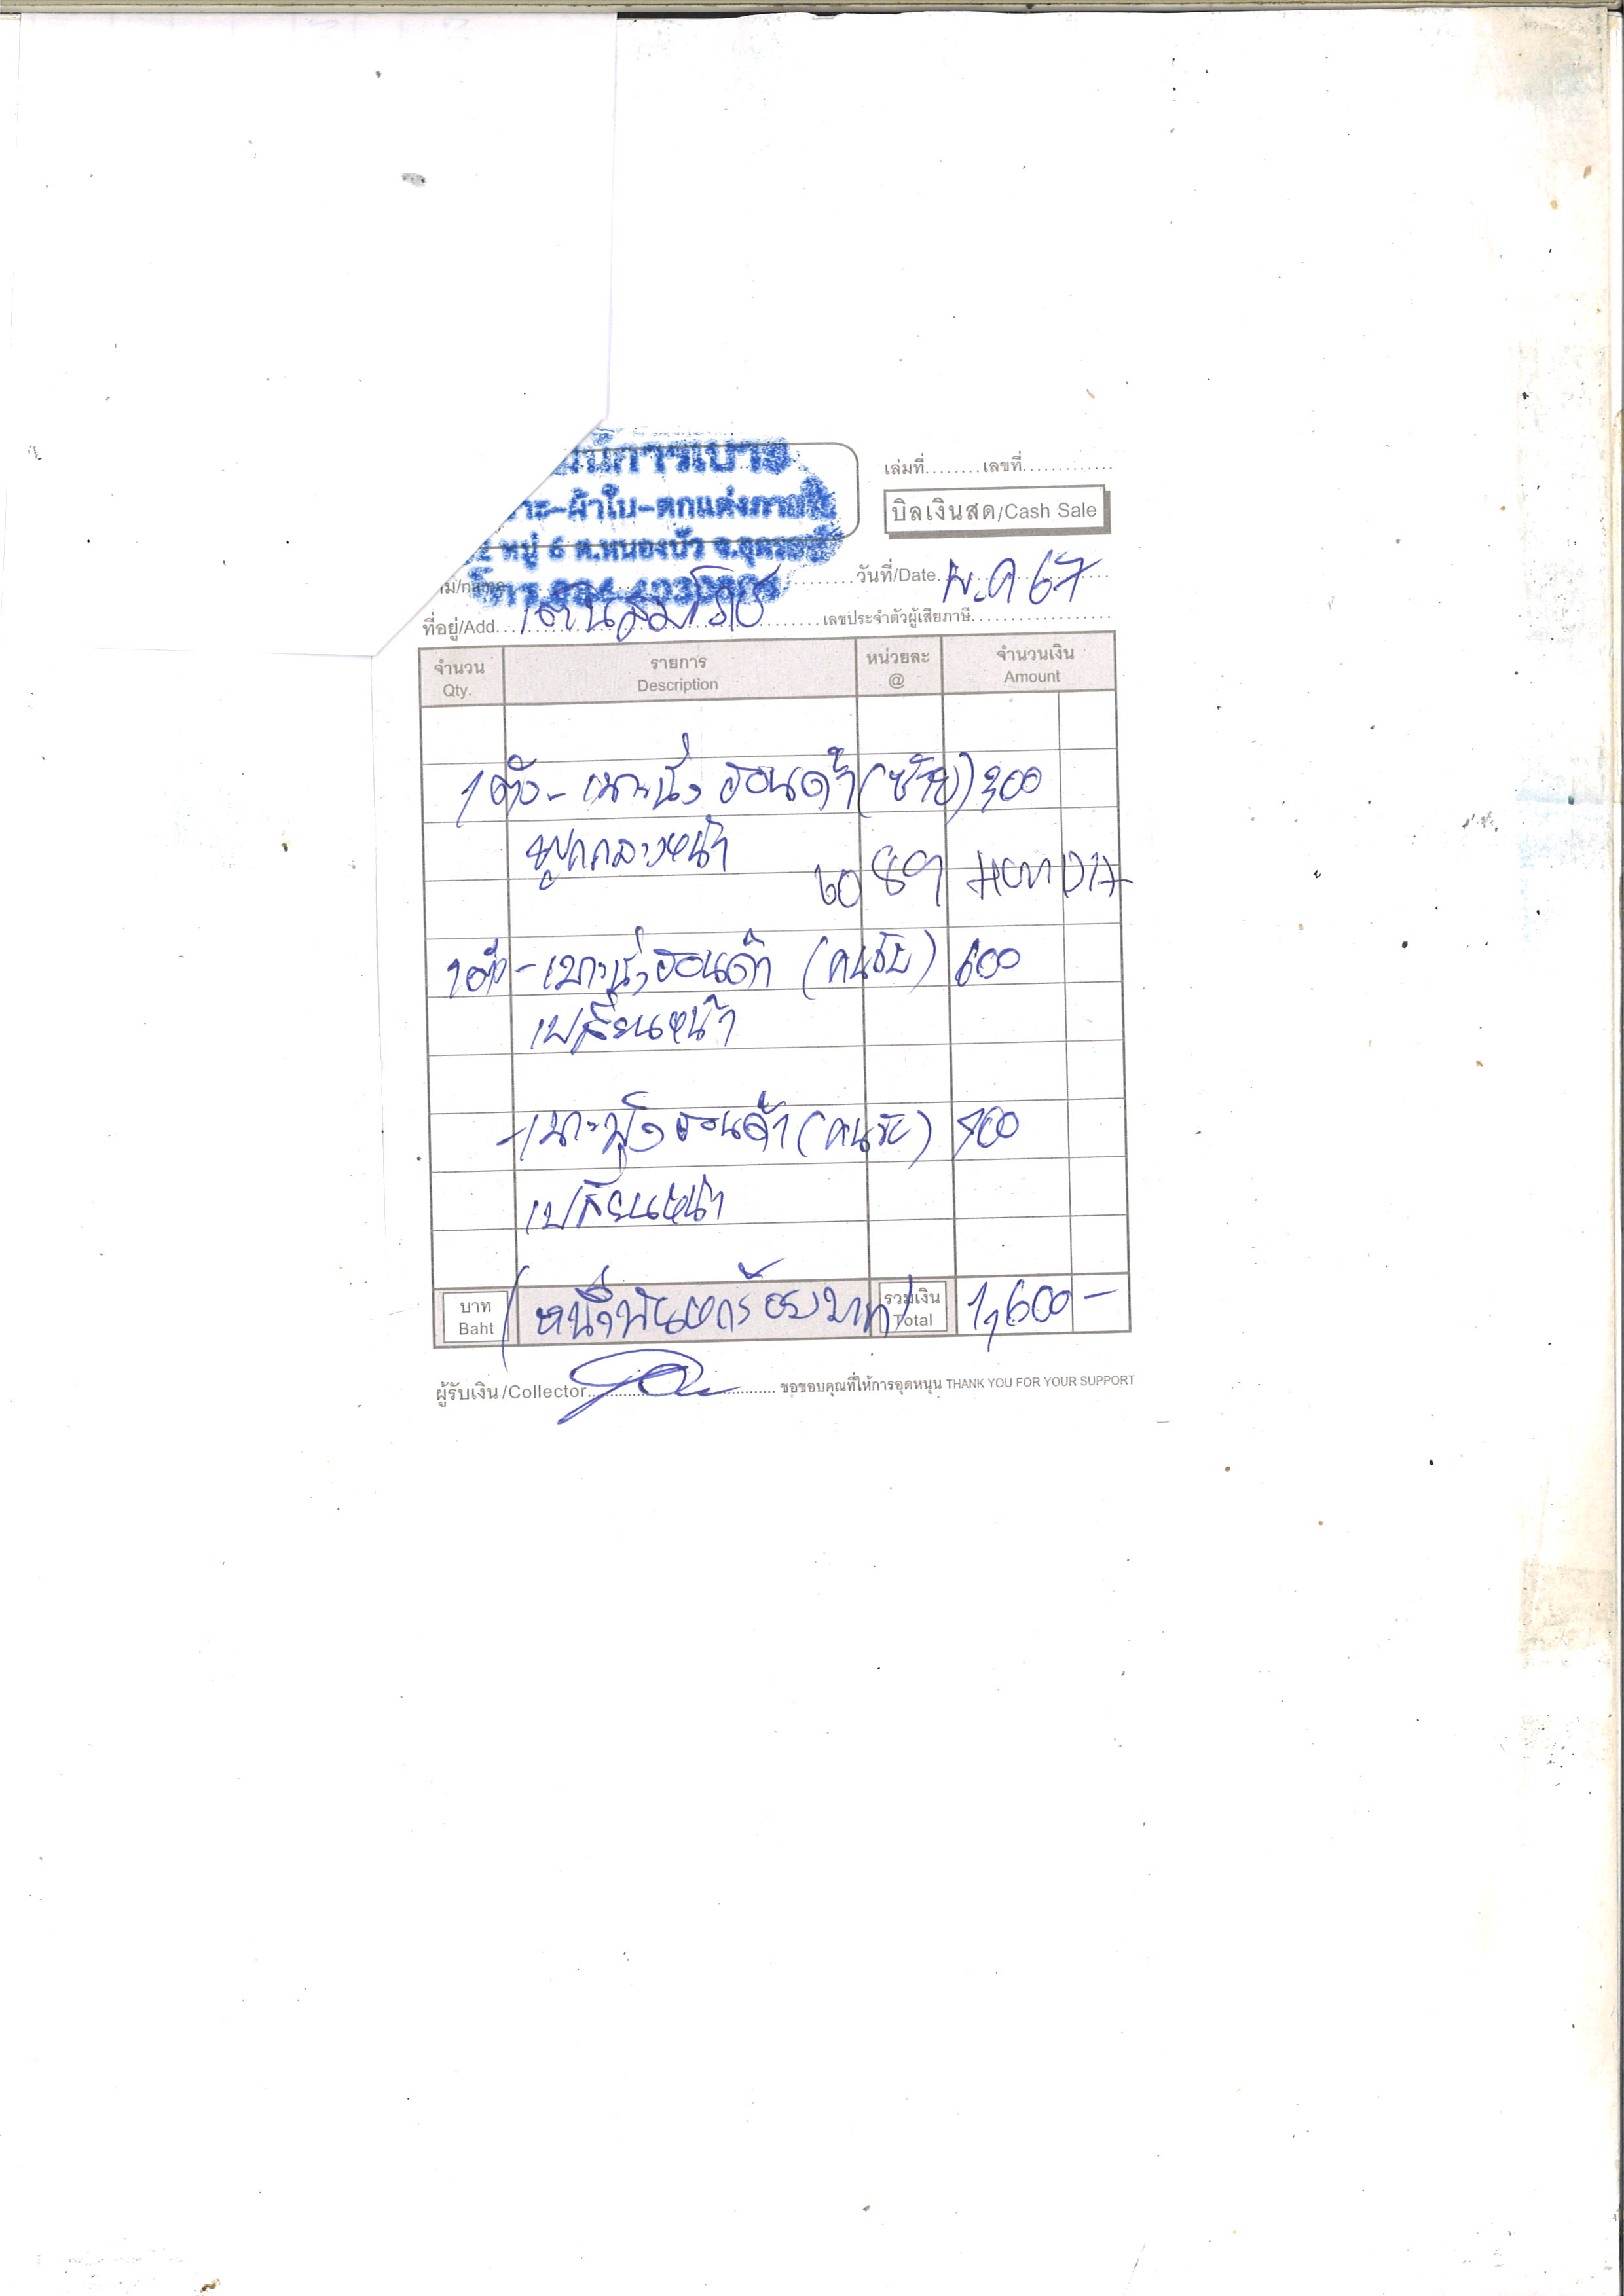 การเบาะ
าะ-ผ้าใบ-ตกแต่งภายใน
หมู่ 6 ต.หนองบัว จ.อุดรธานี
เล่มที่........เลขที่.............
บิลเงินสด/Cash Sale
วันที่/Date. พ.ค 67
ที่อยู่/Add.
เลขประจำตัวผู้เสียภาษี
จำนวน รายการ หน่วยละ จำนวนเงิน
Qty. Description @ Amount
1 ตัว - เบาะนั่ง ฮอนด้า (ซ้าย) 300
หน้า
60 89 HONDA
1 ตัว - เบาะนั่ง ฮอนด้า (คนขับ) 600
เปลี่ยนหน้า
- เบาะพิง ฮอนด้า (คนขับ) 700
เปลี่ยนหน้า
บาท (หนึ่งพันหกร้อยบาท) รวมเงิน 1,600 -
Baht Total
ผู้รับเงิน/Collector ขอขอบคุณที่ให้การอุดหนุน THANK YOU FOR YOUR SUPPORT